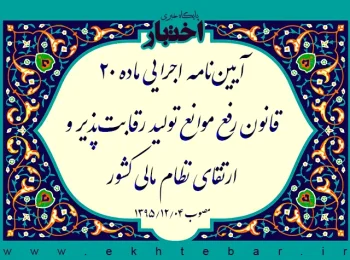 پایگاه خبری
اختبار
آیین‌نامه اجرایی ماده ۲۰
قانون رفع موانع تولید رقابت‌پذیر و
ارتقای نظام مالی کشور
مصوب ۱۳۹۵/۱۲/۰۴
www.ekhtebar.ir